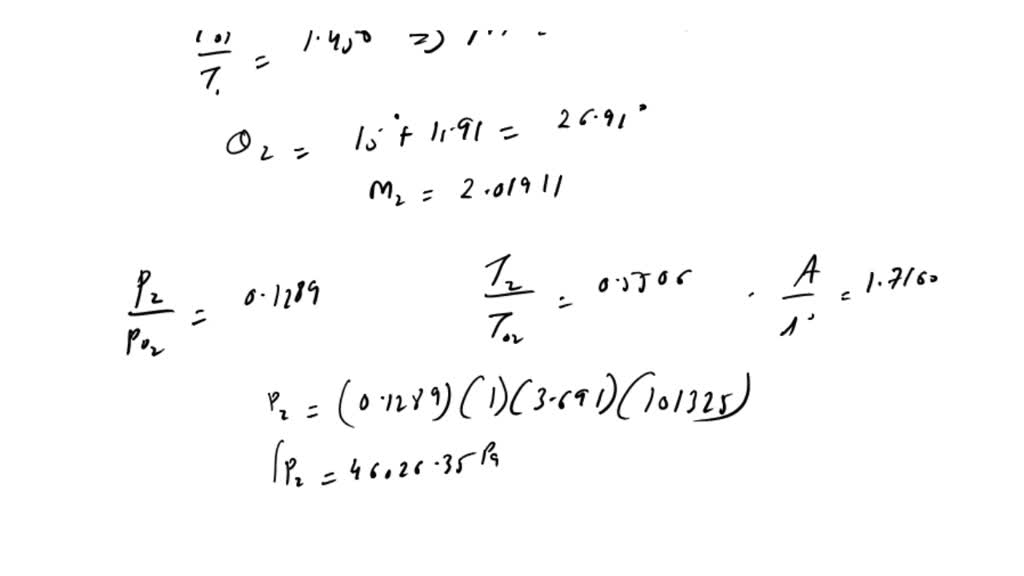 T₁ = 1.450 ⇒
θ₂ = 15° + 11.91 = 26.91°
M₂ = 2.01911
P₂/P₀₂ = 0.1289 T₂/T₀₂ = 0.5506 . A/A* = 1.7160
P₂ = (0.1289)(1)(3.691)(101325)
P₂ = 46026.35 Pa